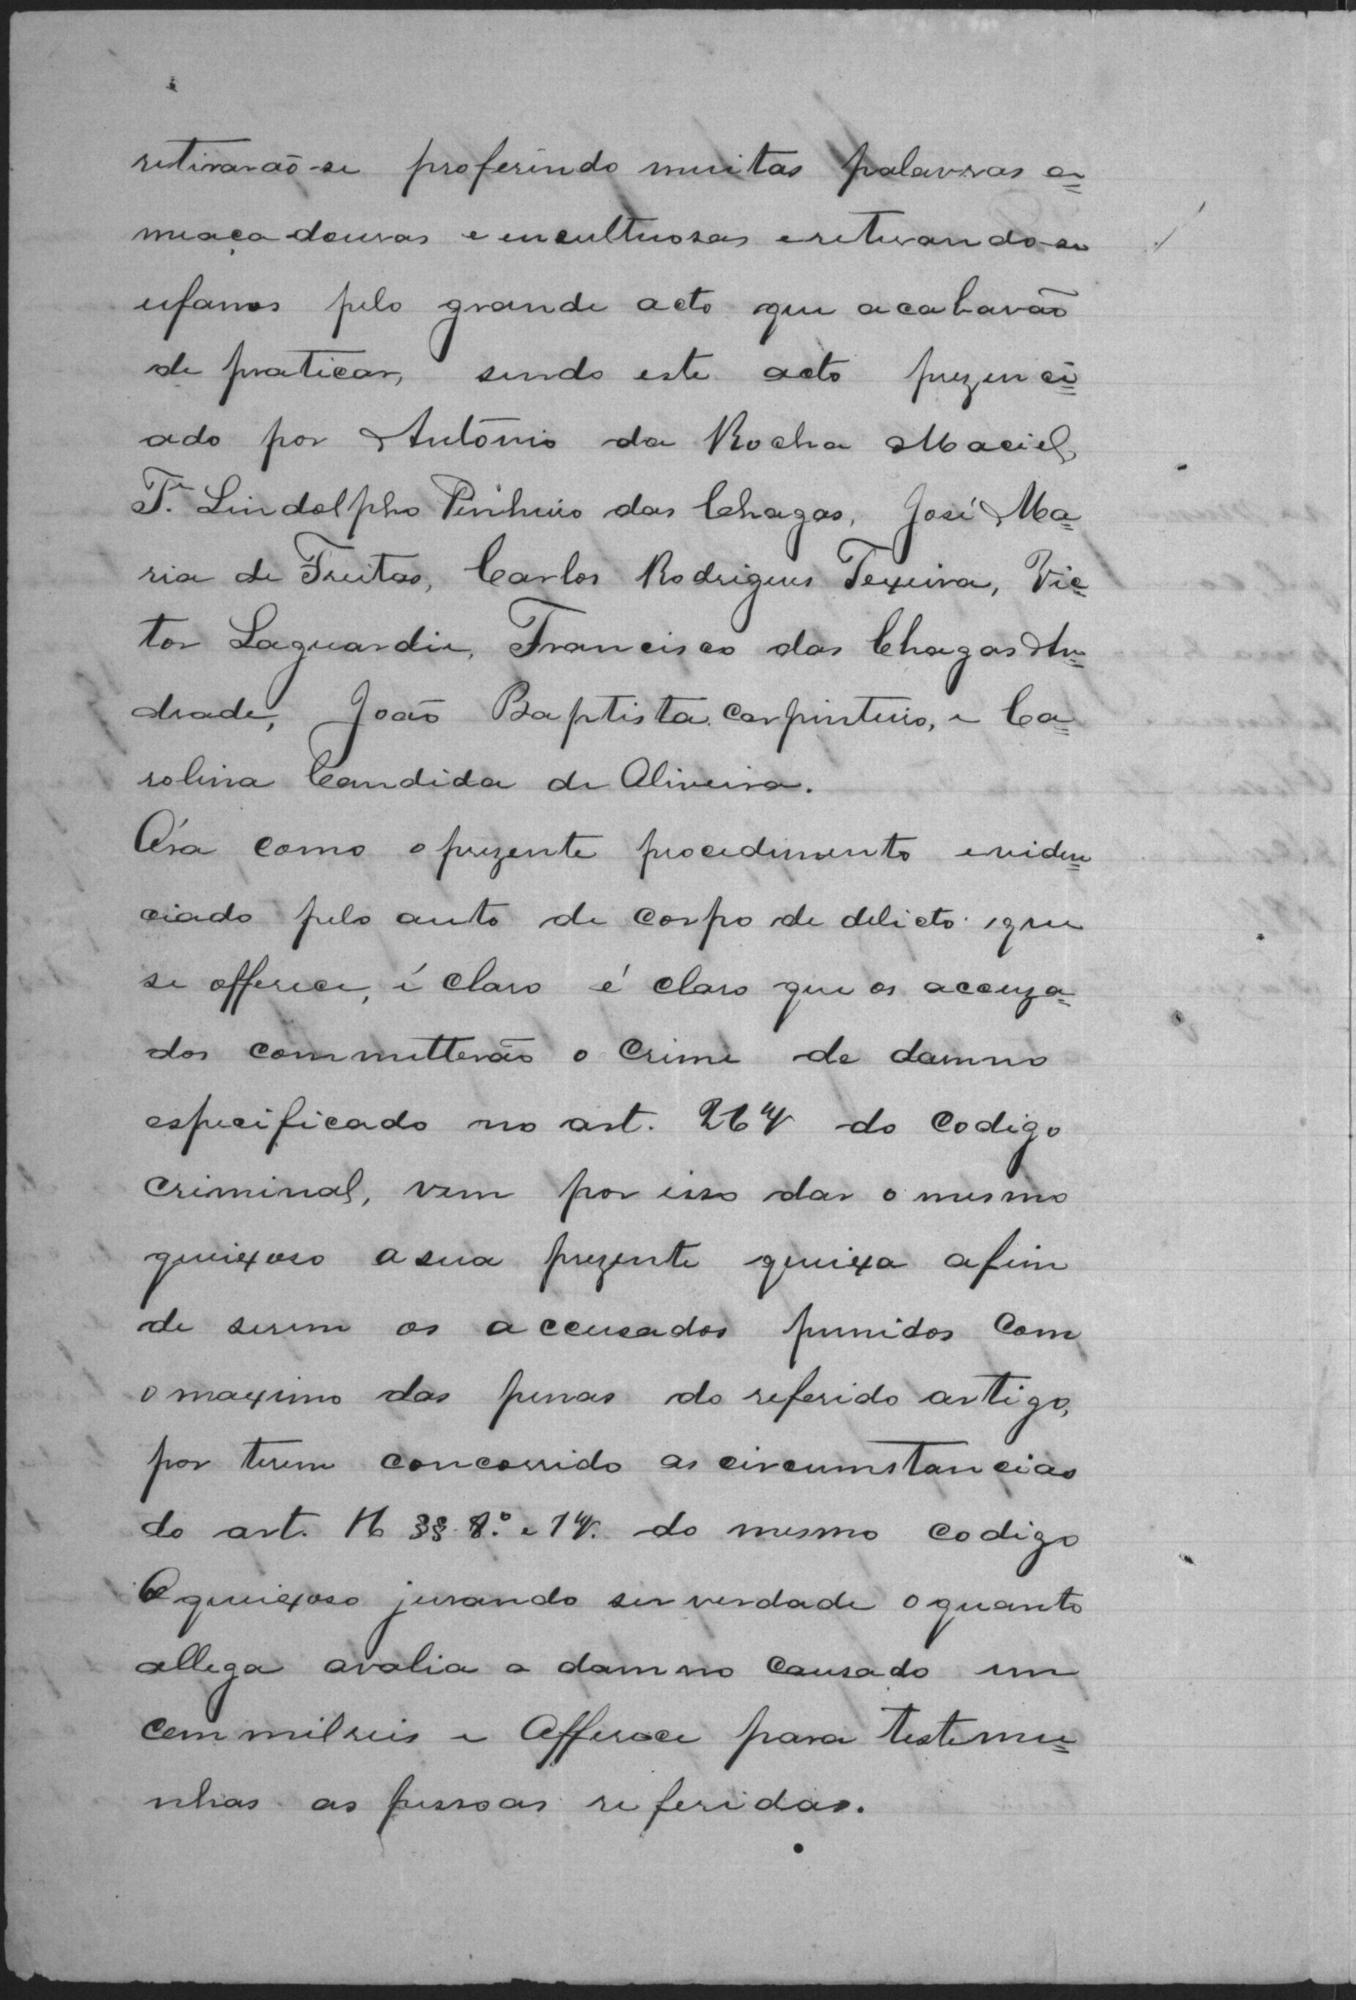 retirarão-se proferindo muitas palavras a=
meaçadouras e encultuosas e retirando-se
ufanos pelo grande acto que acabavão
de praticar, sendo este acto prezenci=
ado por Antônio da Rocha Maciel,
Te. Lindolpho Pinheiro das Chagas, José Ma=
ria de Freitas, Carlos Rodrigues Texeira, Vic=
tor Laguardia, Francisco das Chagas An=
drade, João Baptista carpinteiro, e Ca=
rolina Candida de Oliveira.
Óra como o prezente procedimento eviden=
ciado pelo auto de corpo de delicto que
se offerece, é claro é claro que os accuza=
dos committerão o crime de damno
especificado no art. 264 do Codigo
Criminal, vem por isso dar o mesmo
queixoso a sua prezente queixa afim
de serem os accusados punidos com
o maximo das penas do referido artigo,
por terem concorrido as circumstancias
do art. 16 §§ 8.º e 14. do mesmo codigo
O queixoso jurando ser verdade o quanto
allega avalia o damno causado em
cem milreis e offerece para testemu=
nhas as pessoas referidas.